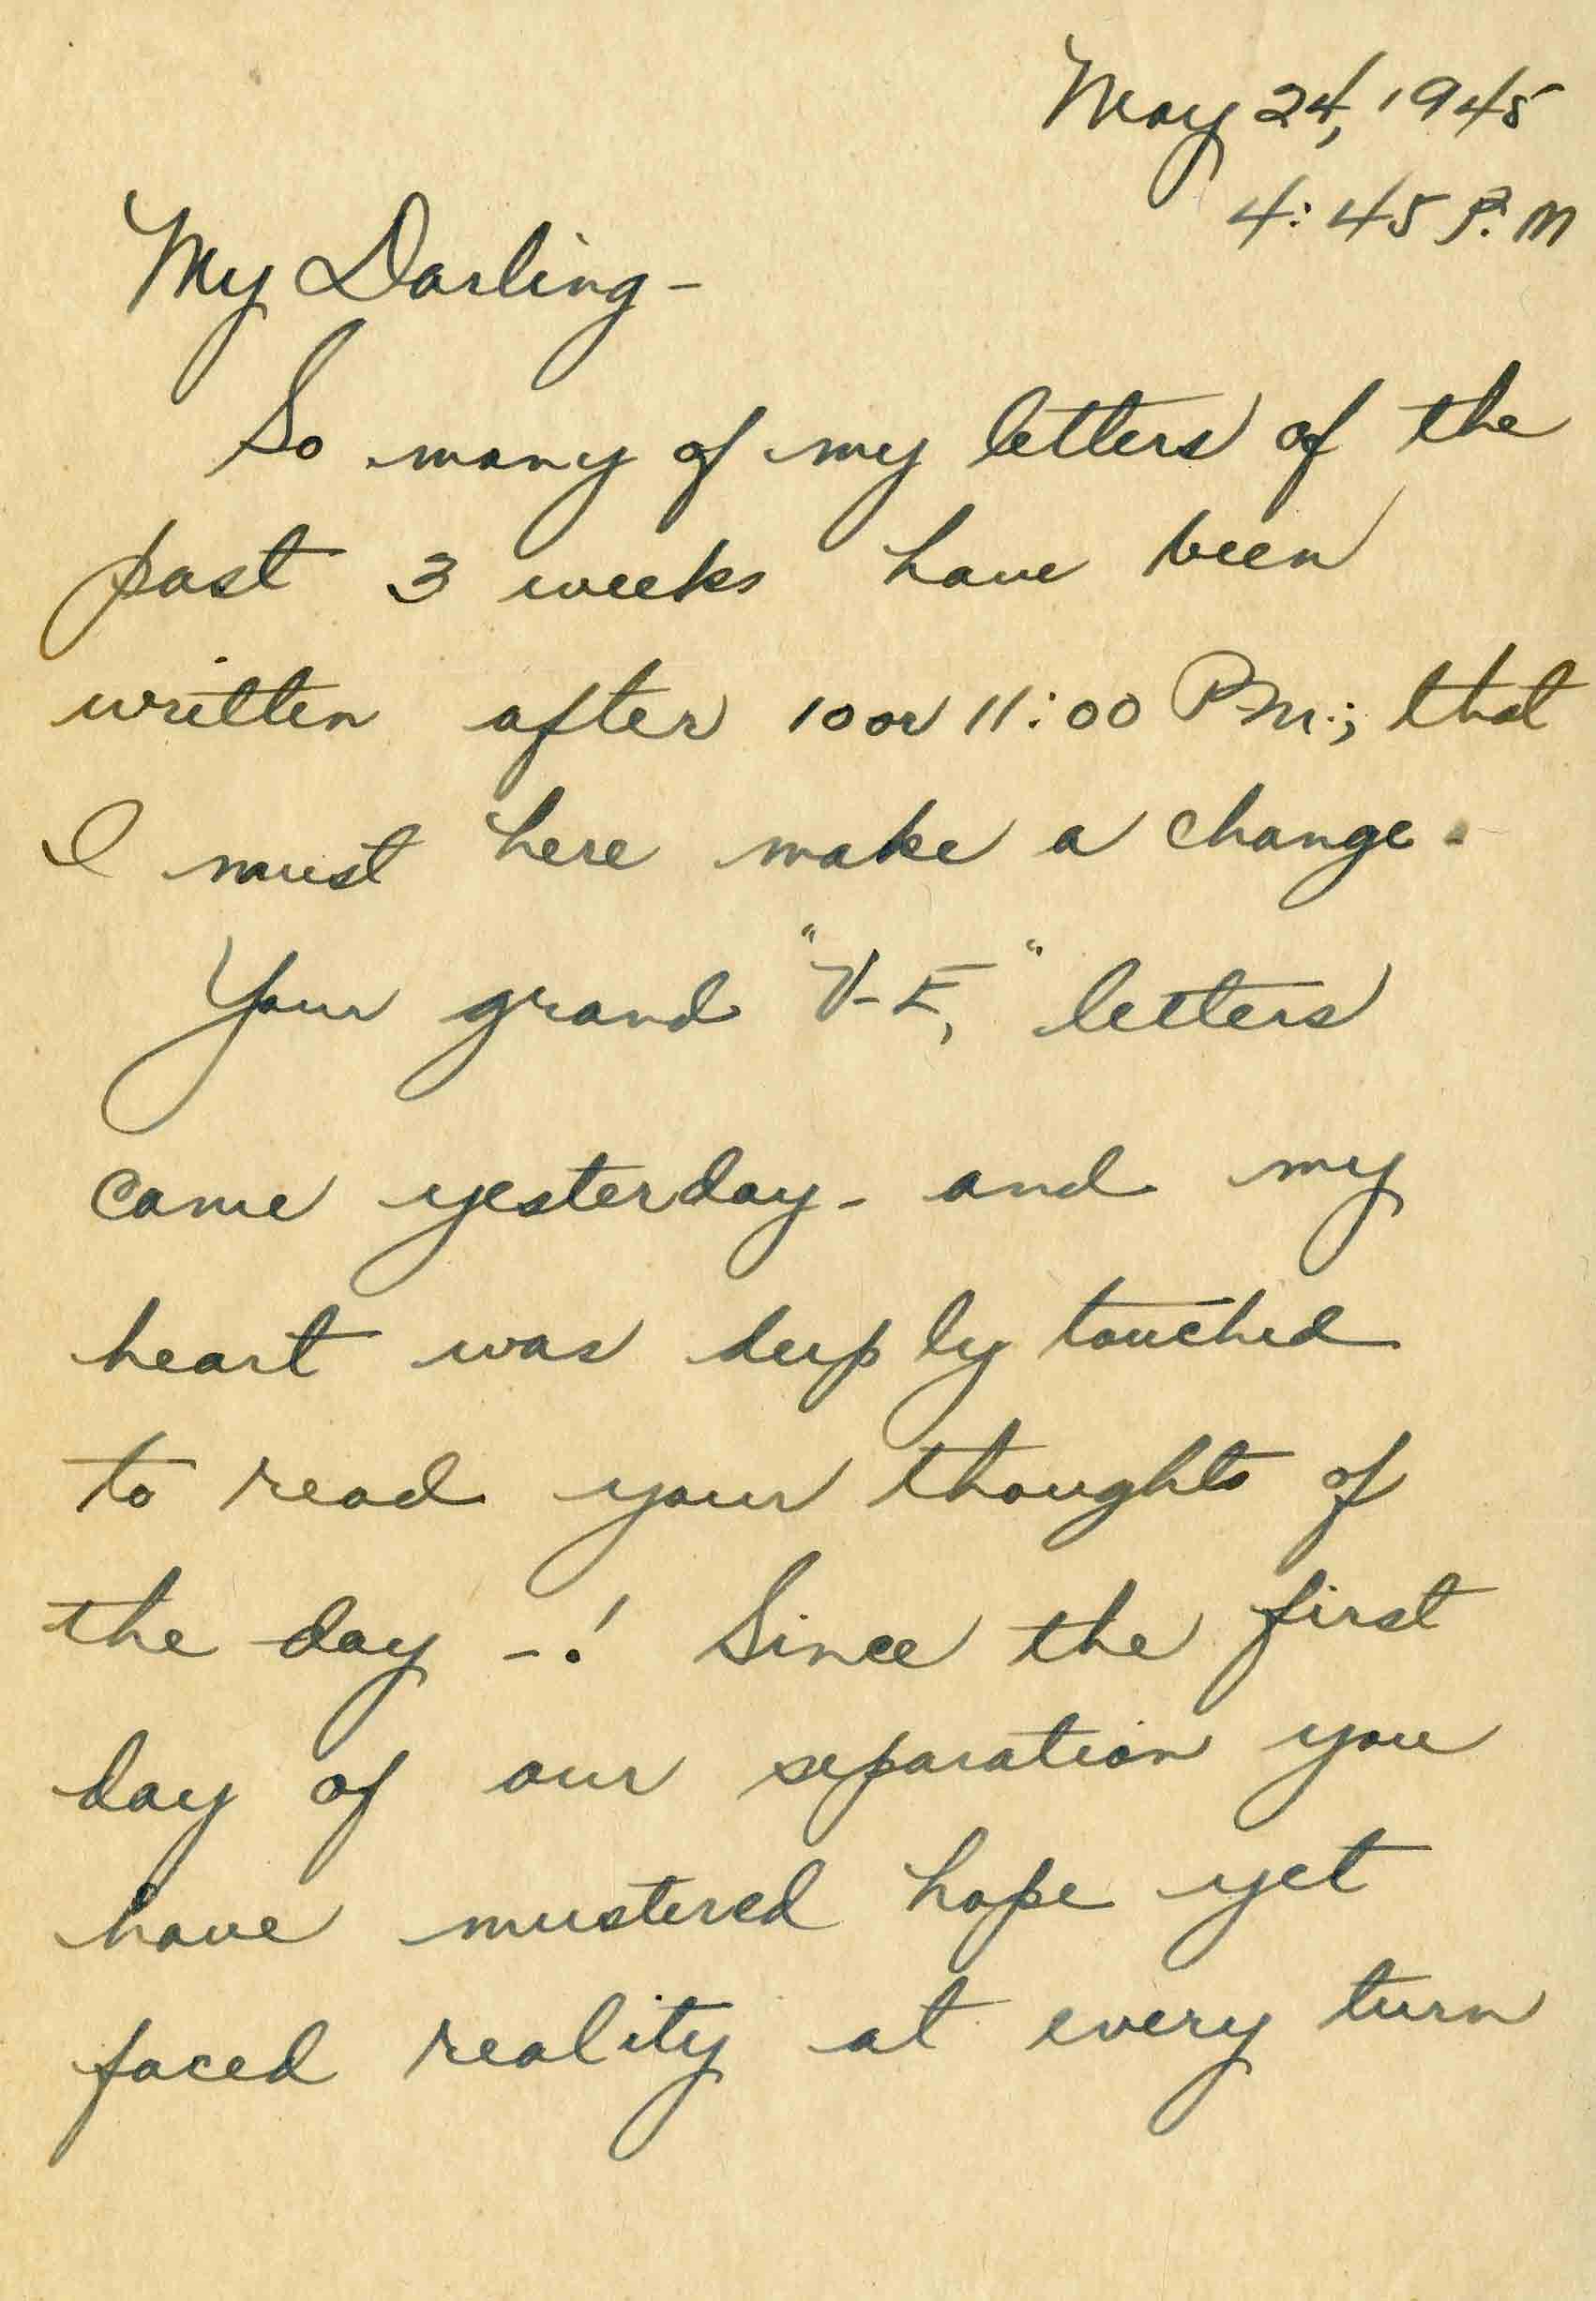 May 24, 1945
4:45 P.M
My Darling-
So many of my letters of the
past 3 weeks have been
written after 10 or 11:00 P.M.; that
I must here make a change.
Your grand "V-E," letters
came yesterday - and my
heart was deeply touched
to read your thoughts of
the day -! Since the first
day of our separation you
have mustered hope yet
faced reality at every turn